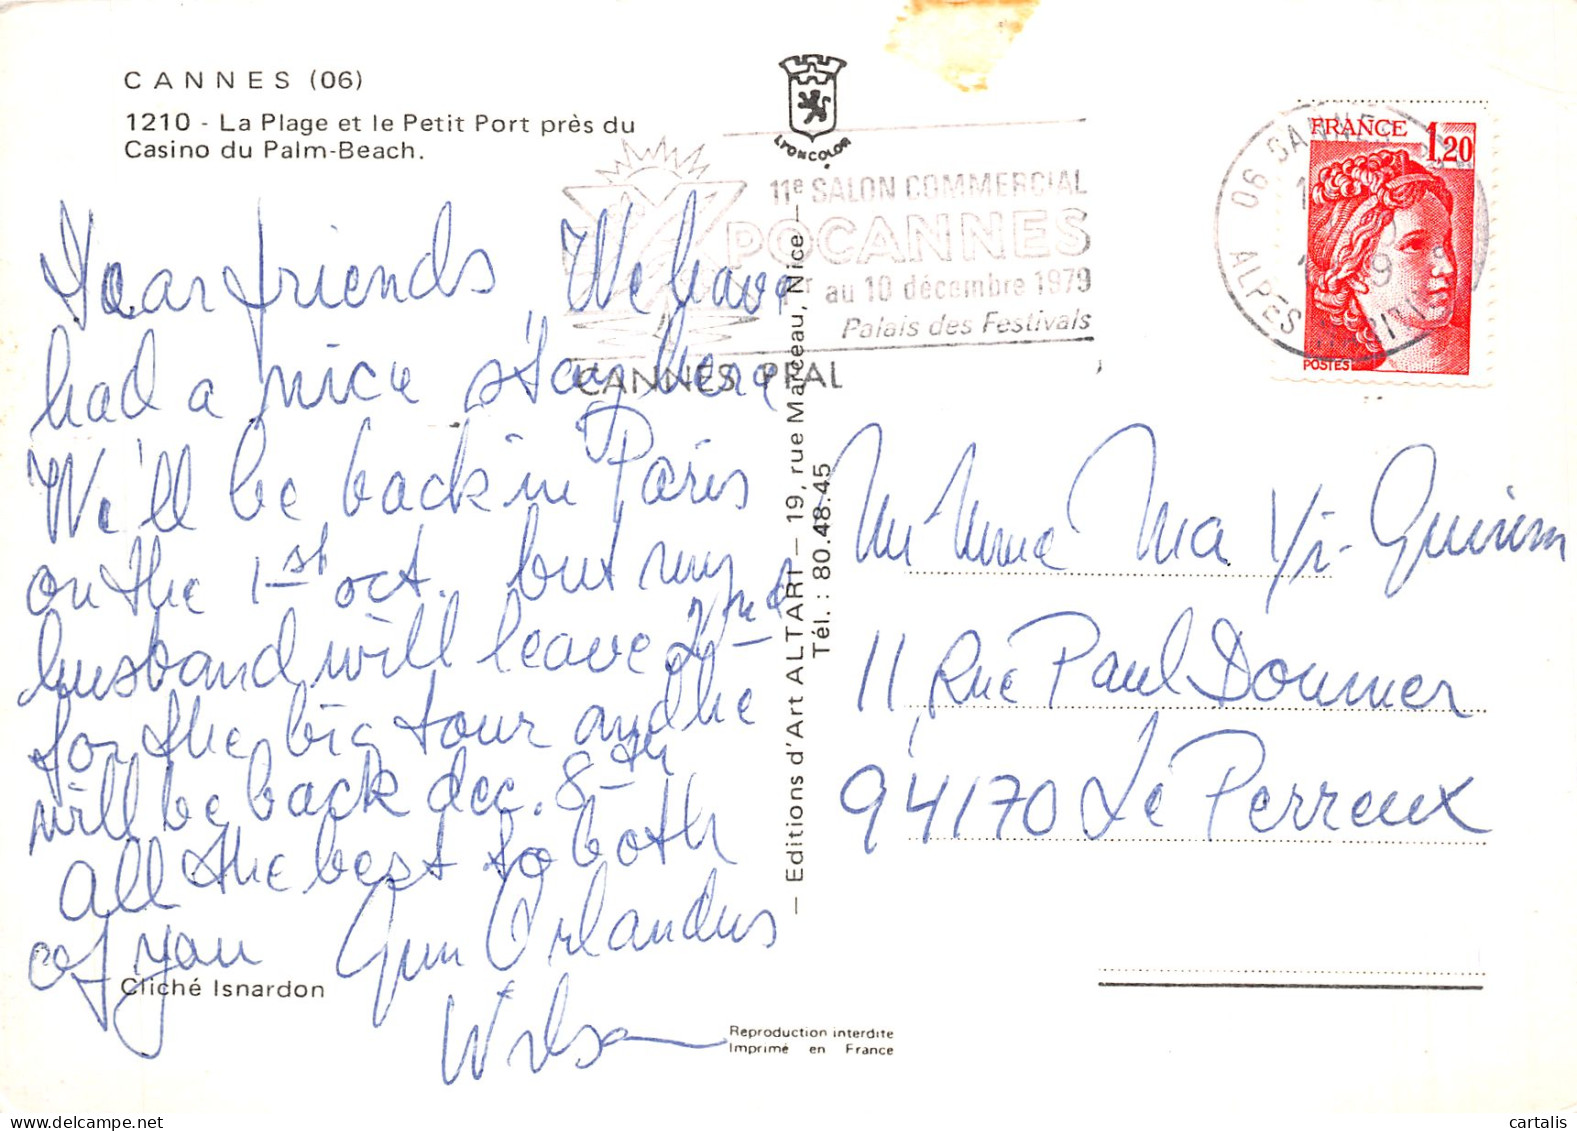 CANNES (06)
1210 - La Plage et le Petit Port près du
Casino du Palm-Beach.
LYONCOLOR
11e SALON COMMERCIAL
POCANNES
1er au 10 décembre 1979
Palais des Festivals
CANNES PPAL
FRANCE
1,20
POSTES
06 CANNES
ALPES MARITIMES
Dear friends, We have
had a nice stay here
We'll be back in Paris
on the 1st oct. but my
husband will leave
for the big tour and he
will be back dec. 8th
All the best to both
of you
— Editions d'Art ALTARI — 19, rue Marceau, Nice —
Tél. : 80.48.45
11, Rue Paul Doumer
94170 Le Perreux
Cliché Isnardon
Reproduction interdite
Imprimé en France
cartalis